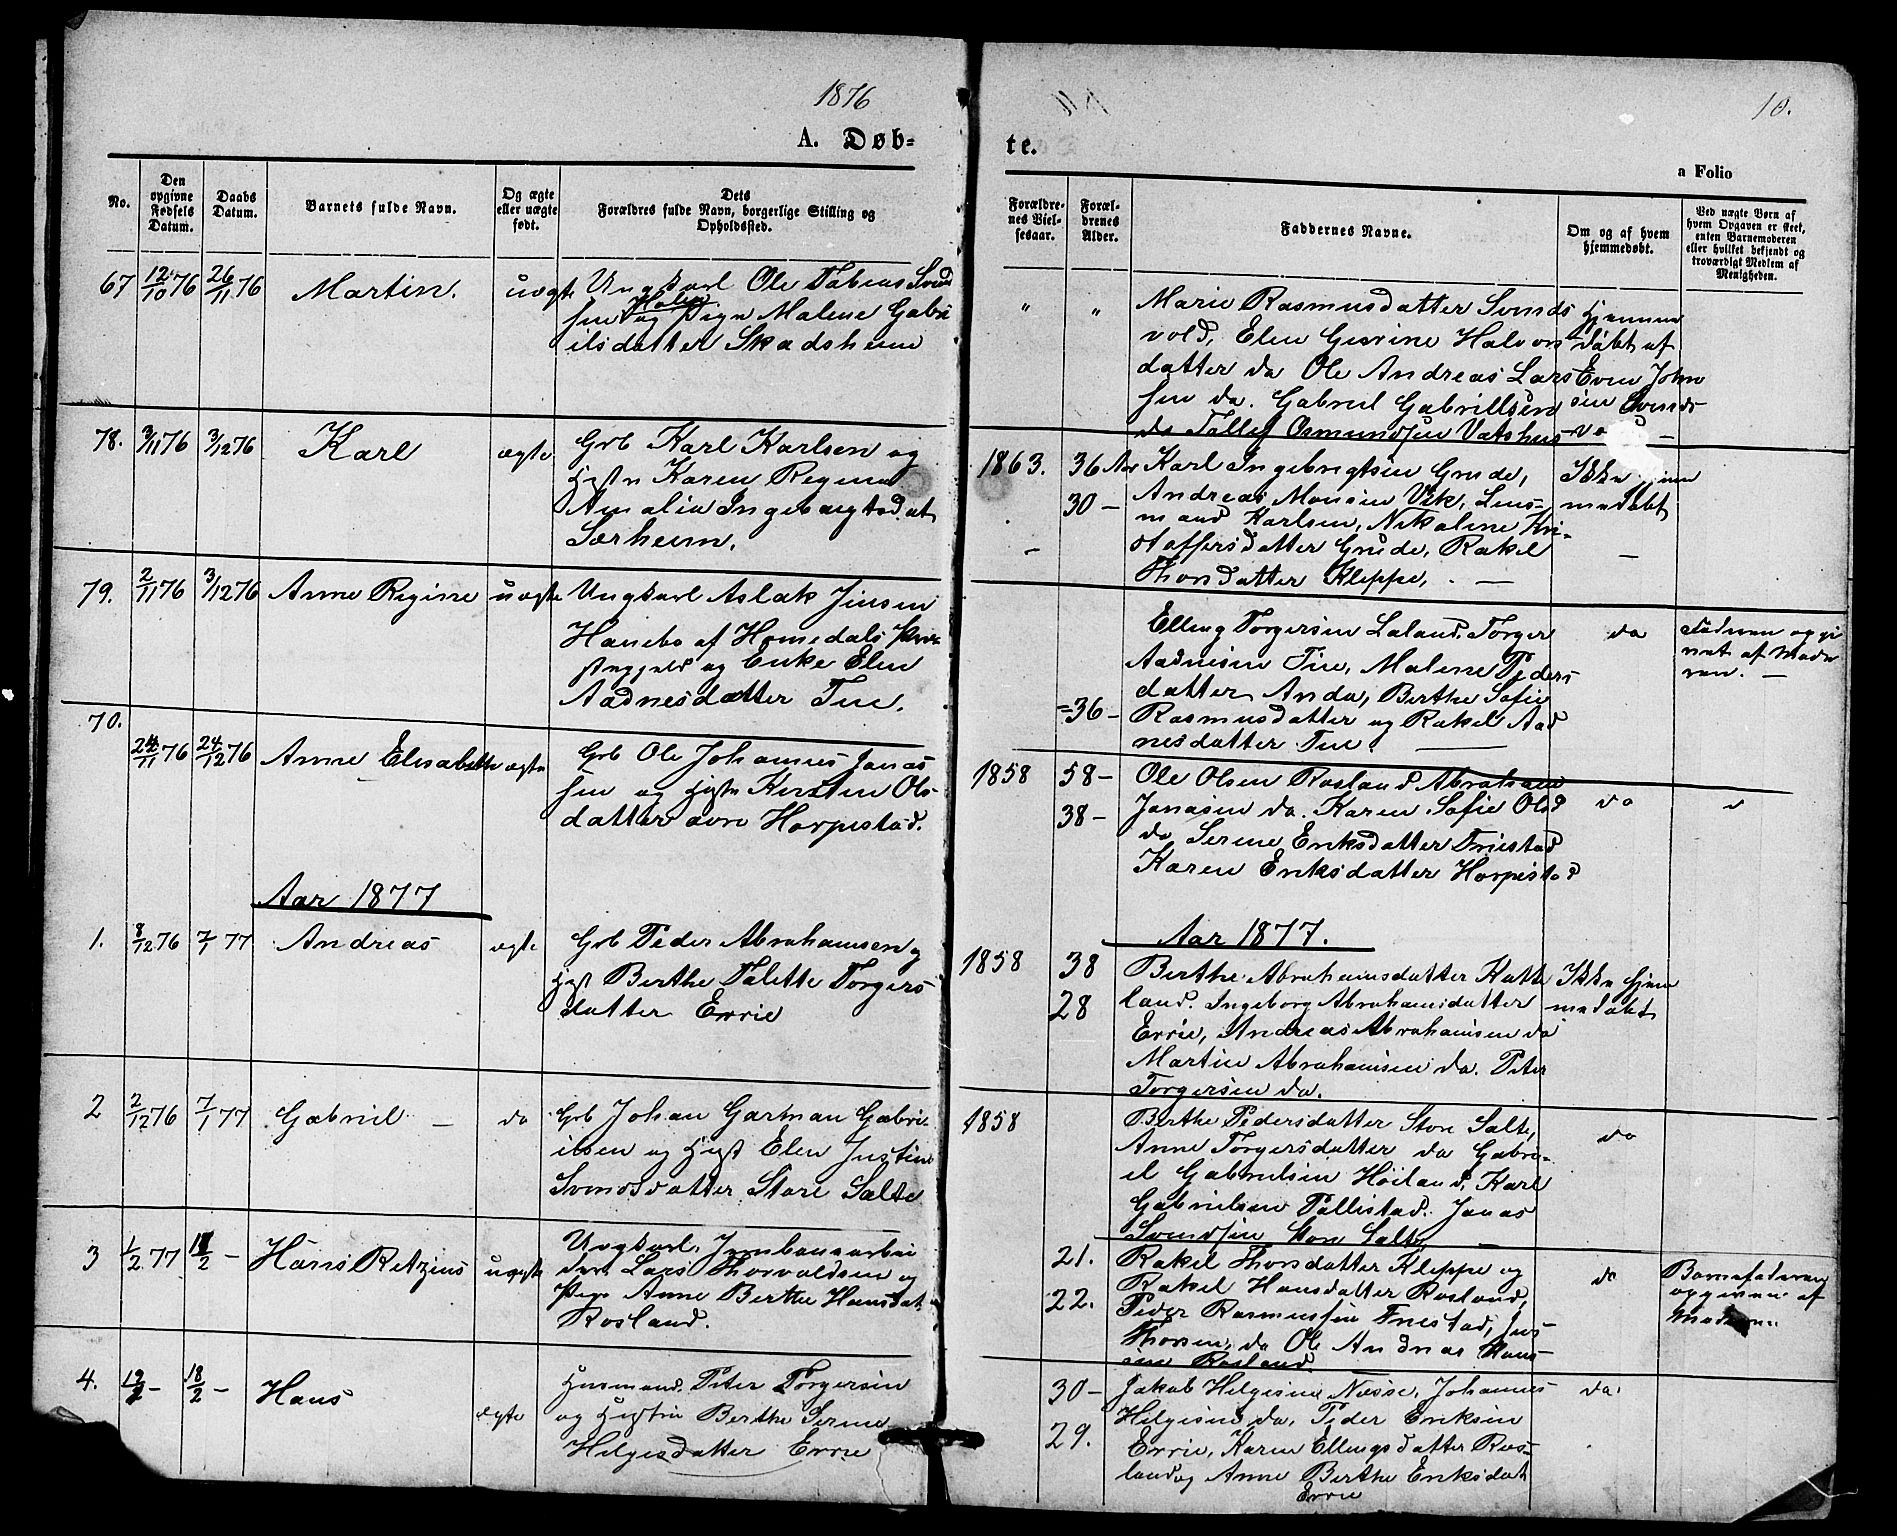 1876
10.
A. Døb=
te.
a Folio
No.
Den opgivne Fødsels Datum.
Daabs Datum.
Barnets fulde Navn.
Og ægte eller uægte født.
Dets Forældres fulde Navn, borgerlige Stilling og Opholdssted.
Forældrenes Vielsesaar.
Forældrenes Alder.
Faddernes Navne.
Om og af hvem hjemmedøbt.
Ved uægte Børn af hvem Opgaven er skeet, enten Barnemoderen eller hvilket bekjendt og troværdigt Medlem af Menigheden.
67 12/10 76 26/11 76 Martin. uægte Ungkarl Ole Tobias Svend
sen og Pige Malene Gabri
elsdatter Skadsheim
" " Marie Rasmusdatter Svends
vold, Elen Halvors
datter do Ole Andreas Lars
sen do. Gabriel Gabrielsen
do Tollef Osmundsen Vatshus
Hjemme
døbt af
Even John
sen Svends
78. 3/11 76 3/12 76 Karl ægte Grb Karl Karlsen og
Hstr Karen Regine
Amalia Ingebregtsd. at
Særheim.
1863. 36 Aar
30 –
Karl Ingebrigtsen Grude,
Andreas Monsen Vik, Lens-
mand Karlsen, Nikoline Kri-
stoffersdatter Grude, Rakel
Thorsdatter Kleppe. –
Ikke hjem
medøbt
–
79. 2/11 76 3/12 76 Anne Regine uægte Ungkarl Aslak Jensen
Hanebo af Homedals Præ
stegjeld og Enke Elen
Aadnesdatter Tue.
=36–
Elling Torgersen Laland, Torger
Aadnesen Tue, Malene Peders
datter Anda, Berthe Sofie
Rasmusdatter og Rakel Aad
nesdatter Tue.
do
Faderen opgi
vet af Mode
ren. –
70.
24/11 76 24/12 76 Anne Elisabeth ægte Grb Ole Johannes Jonas
sen og Hstr Kirsten Ols-
datter øvre Horpestad.
1858 58–
38–
Ole Olsen Rosland Abraham
Jonasen do. Karen Sofie Olsd
do Serine Eriksdatter Friestad
Karen Eriksdatter Horpestad
do
Aar 1877
Aar 1877.
1. 8/12 76 7/1 77 Andreas ægte Grb Peder Abrahamsen og
Hst Berthe Tolette Torgers
datter Errie
1858 38
28
Berthe Abrahamsdatter Hatte
land. Ingeborg Abrahamsdatter
Errie, Andreas Abrahamsen do
Martin Abrahamsen do. Peter
Torgersen do.
Ikke hjem
medøbt
2 2/12 76 7/1 77 Gabriel – do Grb Johan Garman Gabri-
elsen og Hst Elen Justine
Svendsdatter Store Salte
1858
Berthe Pedersdatter Store Salte,
Anne Torgersdatter do Gabri-
el Gabrielsen Höiland, Karl
Gabrielsen Pollestad. Jonas
Svendsen Store Salte –
do
3 1/2 77 11/2 – Hans Retzius uægte Ungkarl, Jernbanearbei
der Lars Thorvaldsen og
Pige Anne Berthe Hansdat.
Rosland.
21.
22.
Rakel Thorsdatter Kleppe og
Rakel Hansdatter Rosland,
Peder Rasmussen Friestad, Jens
Thorsen, do Ole Andreas Hans-
sen Rosland
do
Barnefaderen
opgiven af
Moderen
4. 12/2 – 18/2 – Hans ægte Husmand. Peter Torgersen
og Hustru Berthe Serine
Helgesdatter Errie
30–
29.
Jakob Helgesen Næsse, Johannes
Helgesen do, Peder Eriksen
Errie, Karen Ellingsdatter Ros-
land og Anne Berthe Eriksdat
Errie
do.